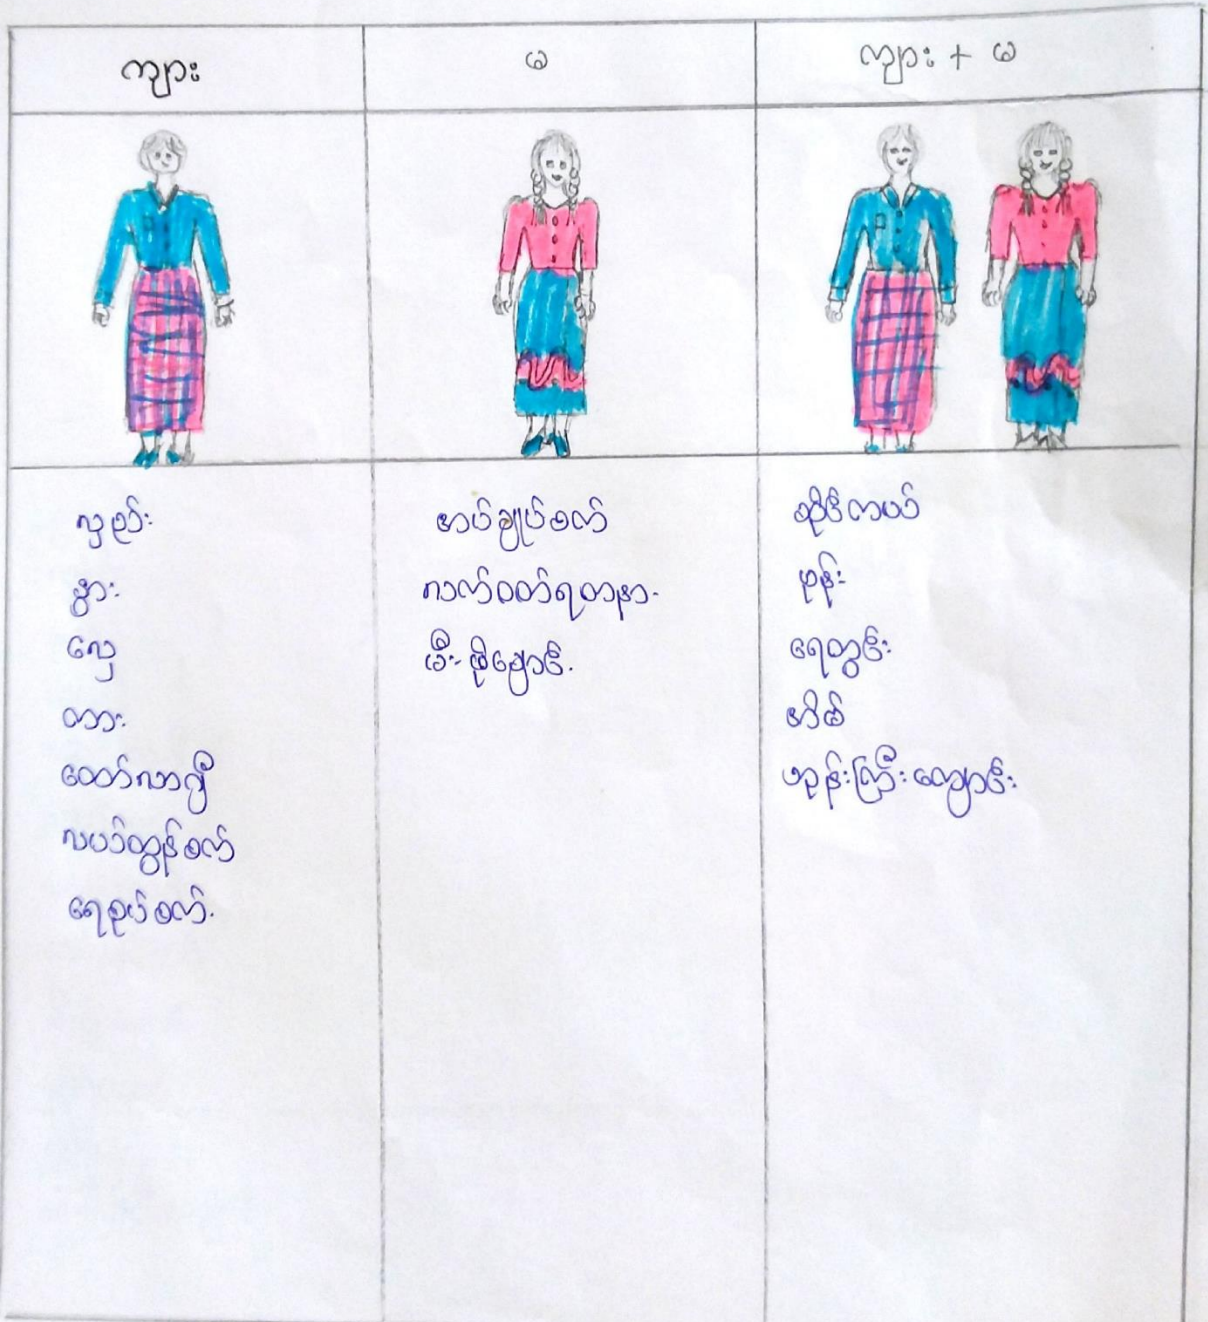 ကျား
မ
ကျား + မ
လှည်း
နွား
လှေ
ကား
ထော်လာဂျီ
လယ်ထွန်စက်
ရေစုပ်စက်
အပ်ချုပ်စက်
လက်ဝတ်ရတနာ
မီးဖိုချောင်
ဆိုင်ကယ်
ဖုန်း
ရေတွင်း
အိမ်
ဘုန်းကြီးကျောင်း